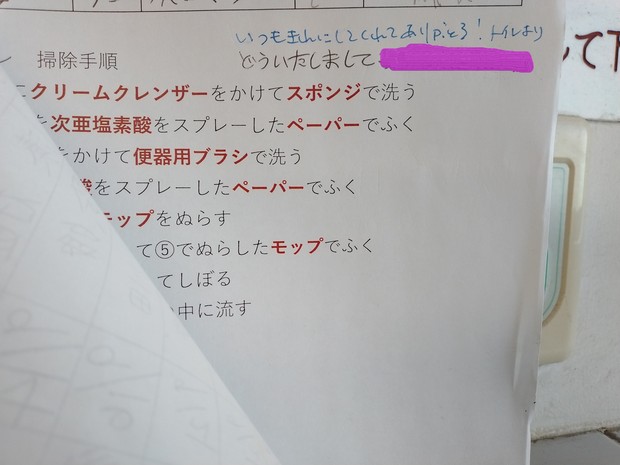 いつもきれいにしてくれてありがとう！トイレより
掃除手順
どういたしまして
て下
クリームクレンザーをかけてスポンジで洗う
を次亜塩素酸をスプレーしたペーパーでふく
をかけて便器用ブラシで洗う
酸をスプレーしたペーパーでふく
モップをぬらす
て⑤でぬらしたモップでふく
てしぼる
中に流す